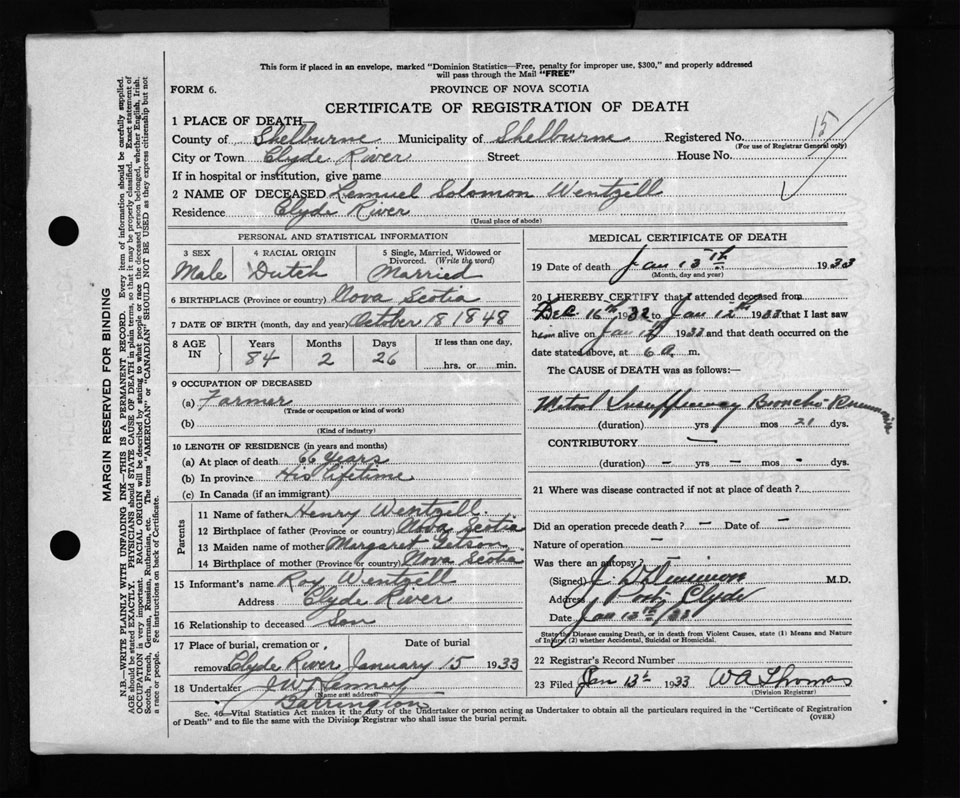 This form if placed in an envelope, marked "Dominion Statistics—Free, penalty for improper use, $300," and properly addressed
will pass through the Mail "FREE"
FORM 6.
PROVINCE OF NOVA SCOTIA
CERTIFICATE OF REGISTRATION OF DEATH
1 PLACE OF DEATH—
County of Shelburne Municipality of Shelburne Registered No. 15
(For use of Registrar General only)
City or Town Clyde River Street House No.
If in hospital or institution, give name
2 NAME OF DECEASED Lemuel Solomon Wentzell
Residence Clyde River
(Usual place of abode)
PERSONAL AND STATISTICAL INFORMATION
3 SEX 4 RACIAL ORIGIN 5 Single, Married, Widowed or Divorced. (Write the word)
Male Dutch Married
6 BIRTHPLACE (Province or country) Nova Scotia
7 DATE OF BIRTH (month, day and year) October 18 1848
8 AGE IN Years Months Days If less than one day,
84 2 26 hrs. or min.
9 OCCUPATION OF DECEASED
(a) Farmer
(Trade or occupation or kind of work)
(b)
(Kind of industry)
10 LENGTH OF RESIDENCE (in years and months)
(a) At place of death 66 years
(b) In province His lifetime
(c) In Canada (if an immigrant)
Parents
11 Name of father Henry Wentzell
12 Birthplace of father (Province or country) Nova Scotia
13 Maiden name of mother Margaret Getson
14 Birthplace of mother (Province or country) Nova Scotia
15 Informant's name Roy Wentzell
Address Clyde River
16 Relationship to deceased Son
17 Place of burial, cremation or Date of burial
removal Clyde River January 15 1933
18 Undertaker J W Kenney
(Name and address)
Barrington
MEDICAL CERTIFICATE OF DEATH
19 Date of death Jan 13th 1933
(Month, day and year)
20 I HEREBY CERTIFY that I attended deceased from
Dec 16th 1932 to Jan 12th 1933 that I last saw
him alive on Jan 1933 and that death occurred on
date stated above, at 6 a. m.
The CAUSE of DEATH was as follows:—
Mitral Insufficiency Broncho-Pneumonia
(duration) yrs mos 21 dys.
CONTRIBUTORY —
(duration) – yrs – mos - dys.
21 Where was disease contracted if not at place of death?
Did an operation precede death? – Date of –
Nature of operation –
Was there an autopsy? –
(Signed) M.D.
Address Port Clyde
Date Jan 13th/33
State the Disease causing Death, or in death from Violent Causes, state (1) Means and Nature
of Injury, (2) whether Accidental, Suicidal or Homicidal.
22 Registrar's Record Number
23 Filed Jan 13th 1933 W A Thomas
(Division Registrar)
Sec. 46—Vital Statistics Act makes it the duty of the Undertaker or person acting as Undertaker to obtain all the particulars required in the "Certificate of Registration
of Death" and to file the same with the Division Registrar who shall issue the burial permit. (OVER)
MARGIN RESERVED FOR BINDING
N.B.—WRITE PLAINLY WITH UNFADING INK—THIS IS A PERMANENT RECORD. Every item of information should be carefully supplied.
AGE should be stated EXACTLY. PHYSICIANS should STATE CAUSE OF DEATH in plain terms, so that it may be properly classified. Exact statement of
OCCUPATION is very important. RACIAL ORIGIN will be described by stating to what people or race the deceased person belonged, whether English, Irish,
Scotch, French, German, Russian, Ruthenian, etc. The terms "AMERICAN" or "CANADIAN" SHOULD NOT BE USED as they express citizenship but not
a race or people. See instructions on back of Certificate.